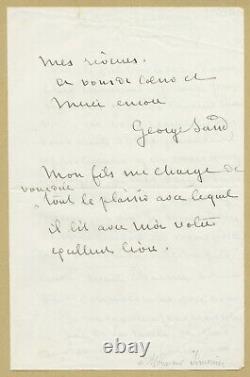 mes rêveries.
à vous de cœur et
merci encore
George Sand
Mon fils me charge de
vous dire
tout le plaisir avec lequel
il lit avec moi votre
excellent livre.
à Monsieur
© humanitie.com